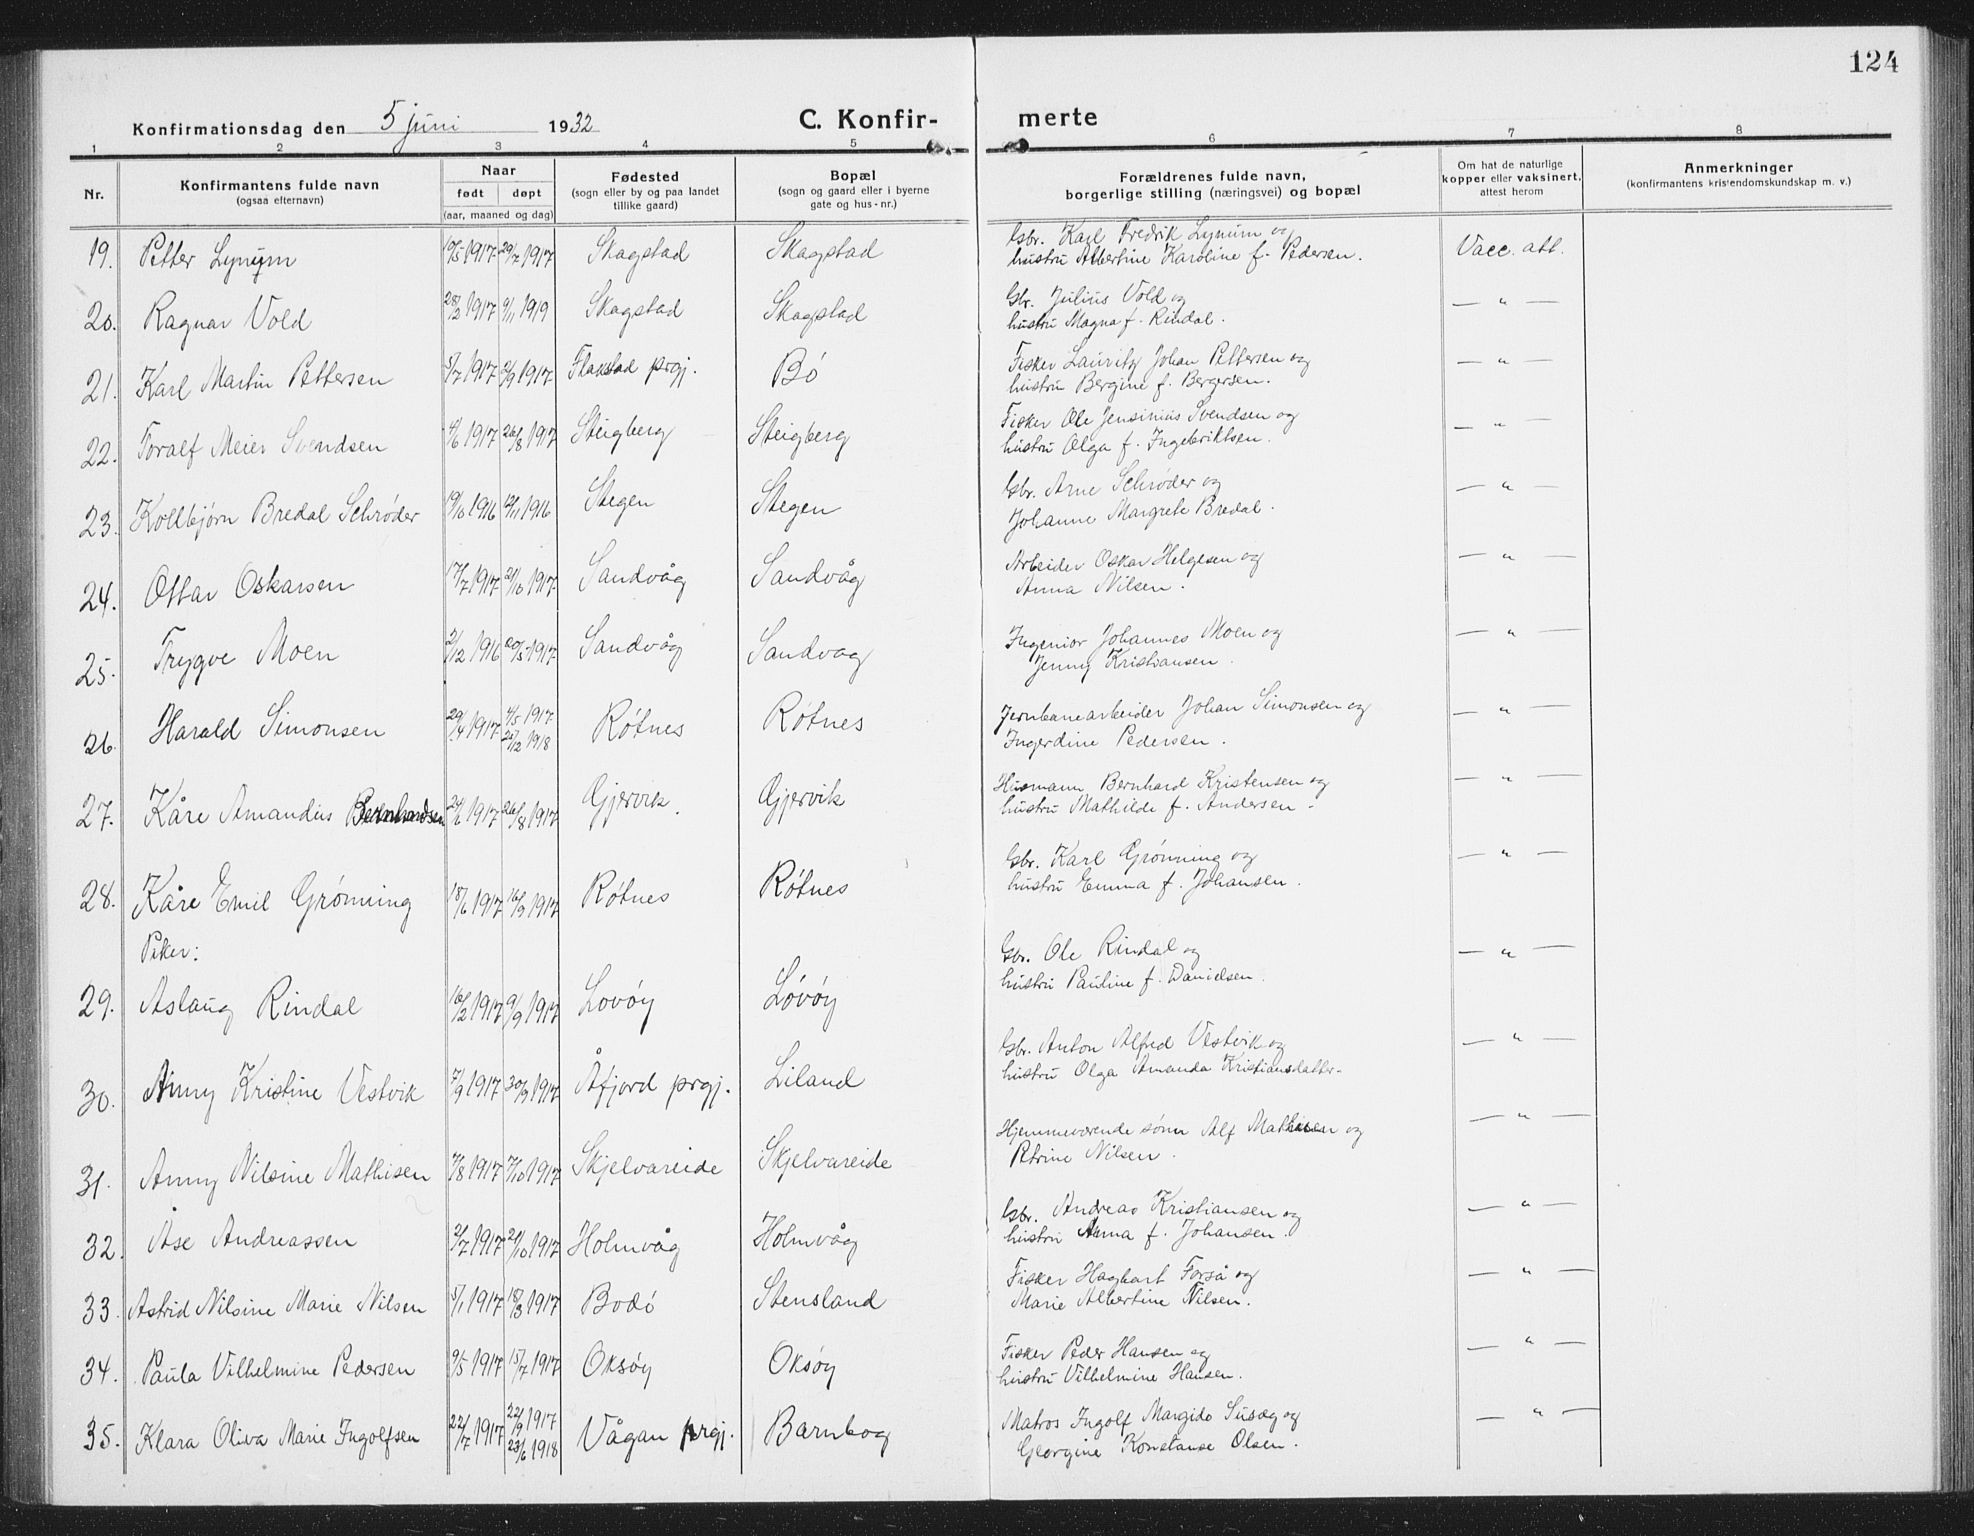 124
Konfirmationsdag den 5 juni 1932 C. Konfir- merte
1 2 3 4 5 6 7 8
Nr. Konfirmantens fulde navn (ogsaa efternavn) Naar født døpt (aar, maaned og dag) Fødested (sogn eller by og paa landet tillike gaard) Bopæl (sogn og gaard eller i byerne gate og hus-nr.) Forældrenes fulde navn, borgerlige stilling (næringsvei) og bopæl Om hat de naturlige kopper eller vaksinert, attest herom Anmerkninger (konfirmantens kristendomskundskap m. v.)
19. Petter Lynum 10/5 1917 29/7 1917 Skagstad Skagstad Gbr. Karl Fredrik Lynum og Vacc. att.
hustru Albertine Karoline f. Pedersen.
20. Ragnar Vold 28/2 1917 9/11 1919 Skagstad Skagstad Gbr. Julius Vold og — " —
hustru Magna f. Rindal.
21. Karl Martin Pettersen 5/7 1917 2/9 1917 Flakstad prgj. Bø Fisker Lauritz Johan Pettersen og — " —
hustru Bergine f. Bergersen.
22. Toralf Meier Svendsen 4/6 1917 26/8 1917 Steigberg Steigberg Fisker Ole Jensinius Svendsen og — " —
hustru Olga f. Ingebriktsen.
23. Kollbjørn Bredal Schrøder 19/10 1916 12/11 1916 Stegen Stegen Gbr. Arne Schrøder og — " —
Johanne Margrete Bredal.
24. Ottar Oskarsen 17/7 1917 21/10 1917 Sandvåg Sandvåg Arbeider Oskar Helgesen og — " —
Anna Nilsen.
25. Trygve Moen 2/12 1916 20/5 1917 Sandvåg Sandvag Ingeniør Johannes Moen og — " —
Jenny Kristiansen.
26. Harald Simonsen 29/4 1917 4/5 1917 Røtnes Røtnes Jernbanearbeider Johan Simonsen og — " —
26/12 1918 Ingerdine Pedersen.
27. Kåre Amandus Bernhardsen 24/6 1917 26/8 1917 Gjervik. Gjervik Husmann Bernhard Kristensen og — " —
hustru Mathilde f. Andersen.
28. Kåre Emil Grønning 18/6 1917 16/9 1917 Røtnes Røtnes Gbr. Karl Grønning og — " —
hustru Emma f. Johansen.
Piker:
29. Aslaug Rindal 16/2 1917 9/9 1917 Lovøy Løvøy Gbr. Ole Rindal og — " —
hustru Pauline f. Danielsen.
30. Anny Kristine Vestvik 7/9 1917 30/9 1917 Åfjord prgj. Liland Gbr. Anton Alfred Vestvik og — " —
hustru Olga Amanda Kristiansdatter.
31. Anny Nilsine Mathisen 7/8 1917 7/10 1917 Skjelvareide Skjelvareide Hjemmeværende sønn Alf Mathisen og — " —
Petrine Nilsen.
32. Åse Andreassen 2/7 1917 21/10 1917 Holmvåg Holmvåg Gbr. Andreas Kristiansen og — " —
hustru Anna f. Johansen.
33. Astrid Nilsine Marie Nilsen 5/1 1917 18/3 1917 Bodø Stensland Fisker Hagbart Forså og — " —
Marie Albertine Nilsen.
34. Paula Vilhelmine Pedersen 9/5 1917 15/7 1917 Oksøy Oksøy Fisker Peder Hansen og — " —
hustru Vilhelmine Hansen.
35. Klara Oliva Marie Ingolfsen 22/7 1917 22/9 1917 Vågan prgj. Barnbog Matros Ingolf Margido Susæg og — " —
23/6 1918 Georgine Konstanse Olsen.